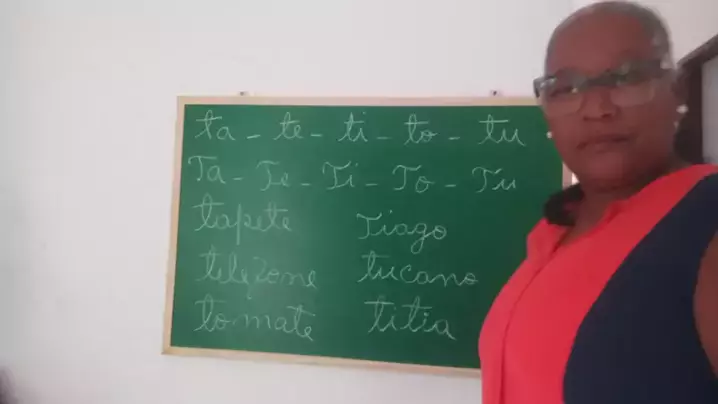 ta - te - ti - to - tu
Ta - Te - Ti - To - Tu
tapete Tiago
telefone tucano
tomate titia